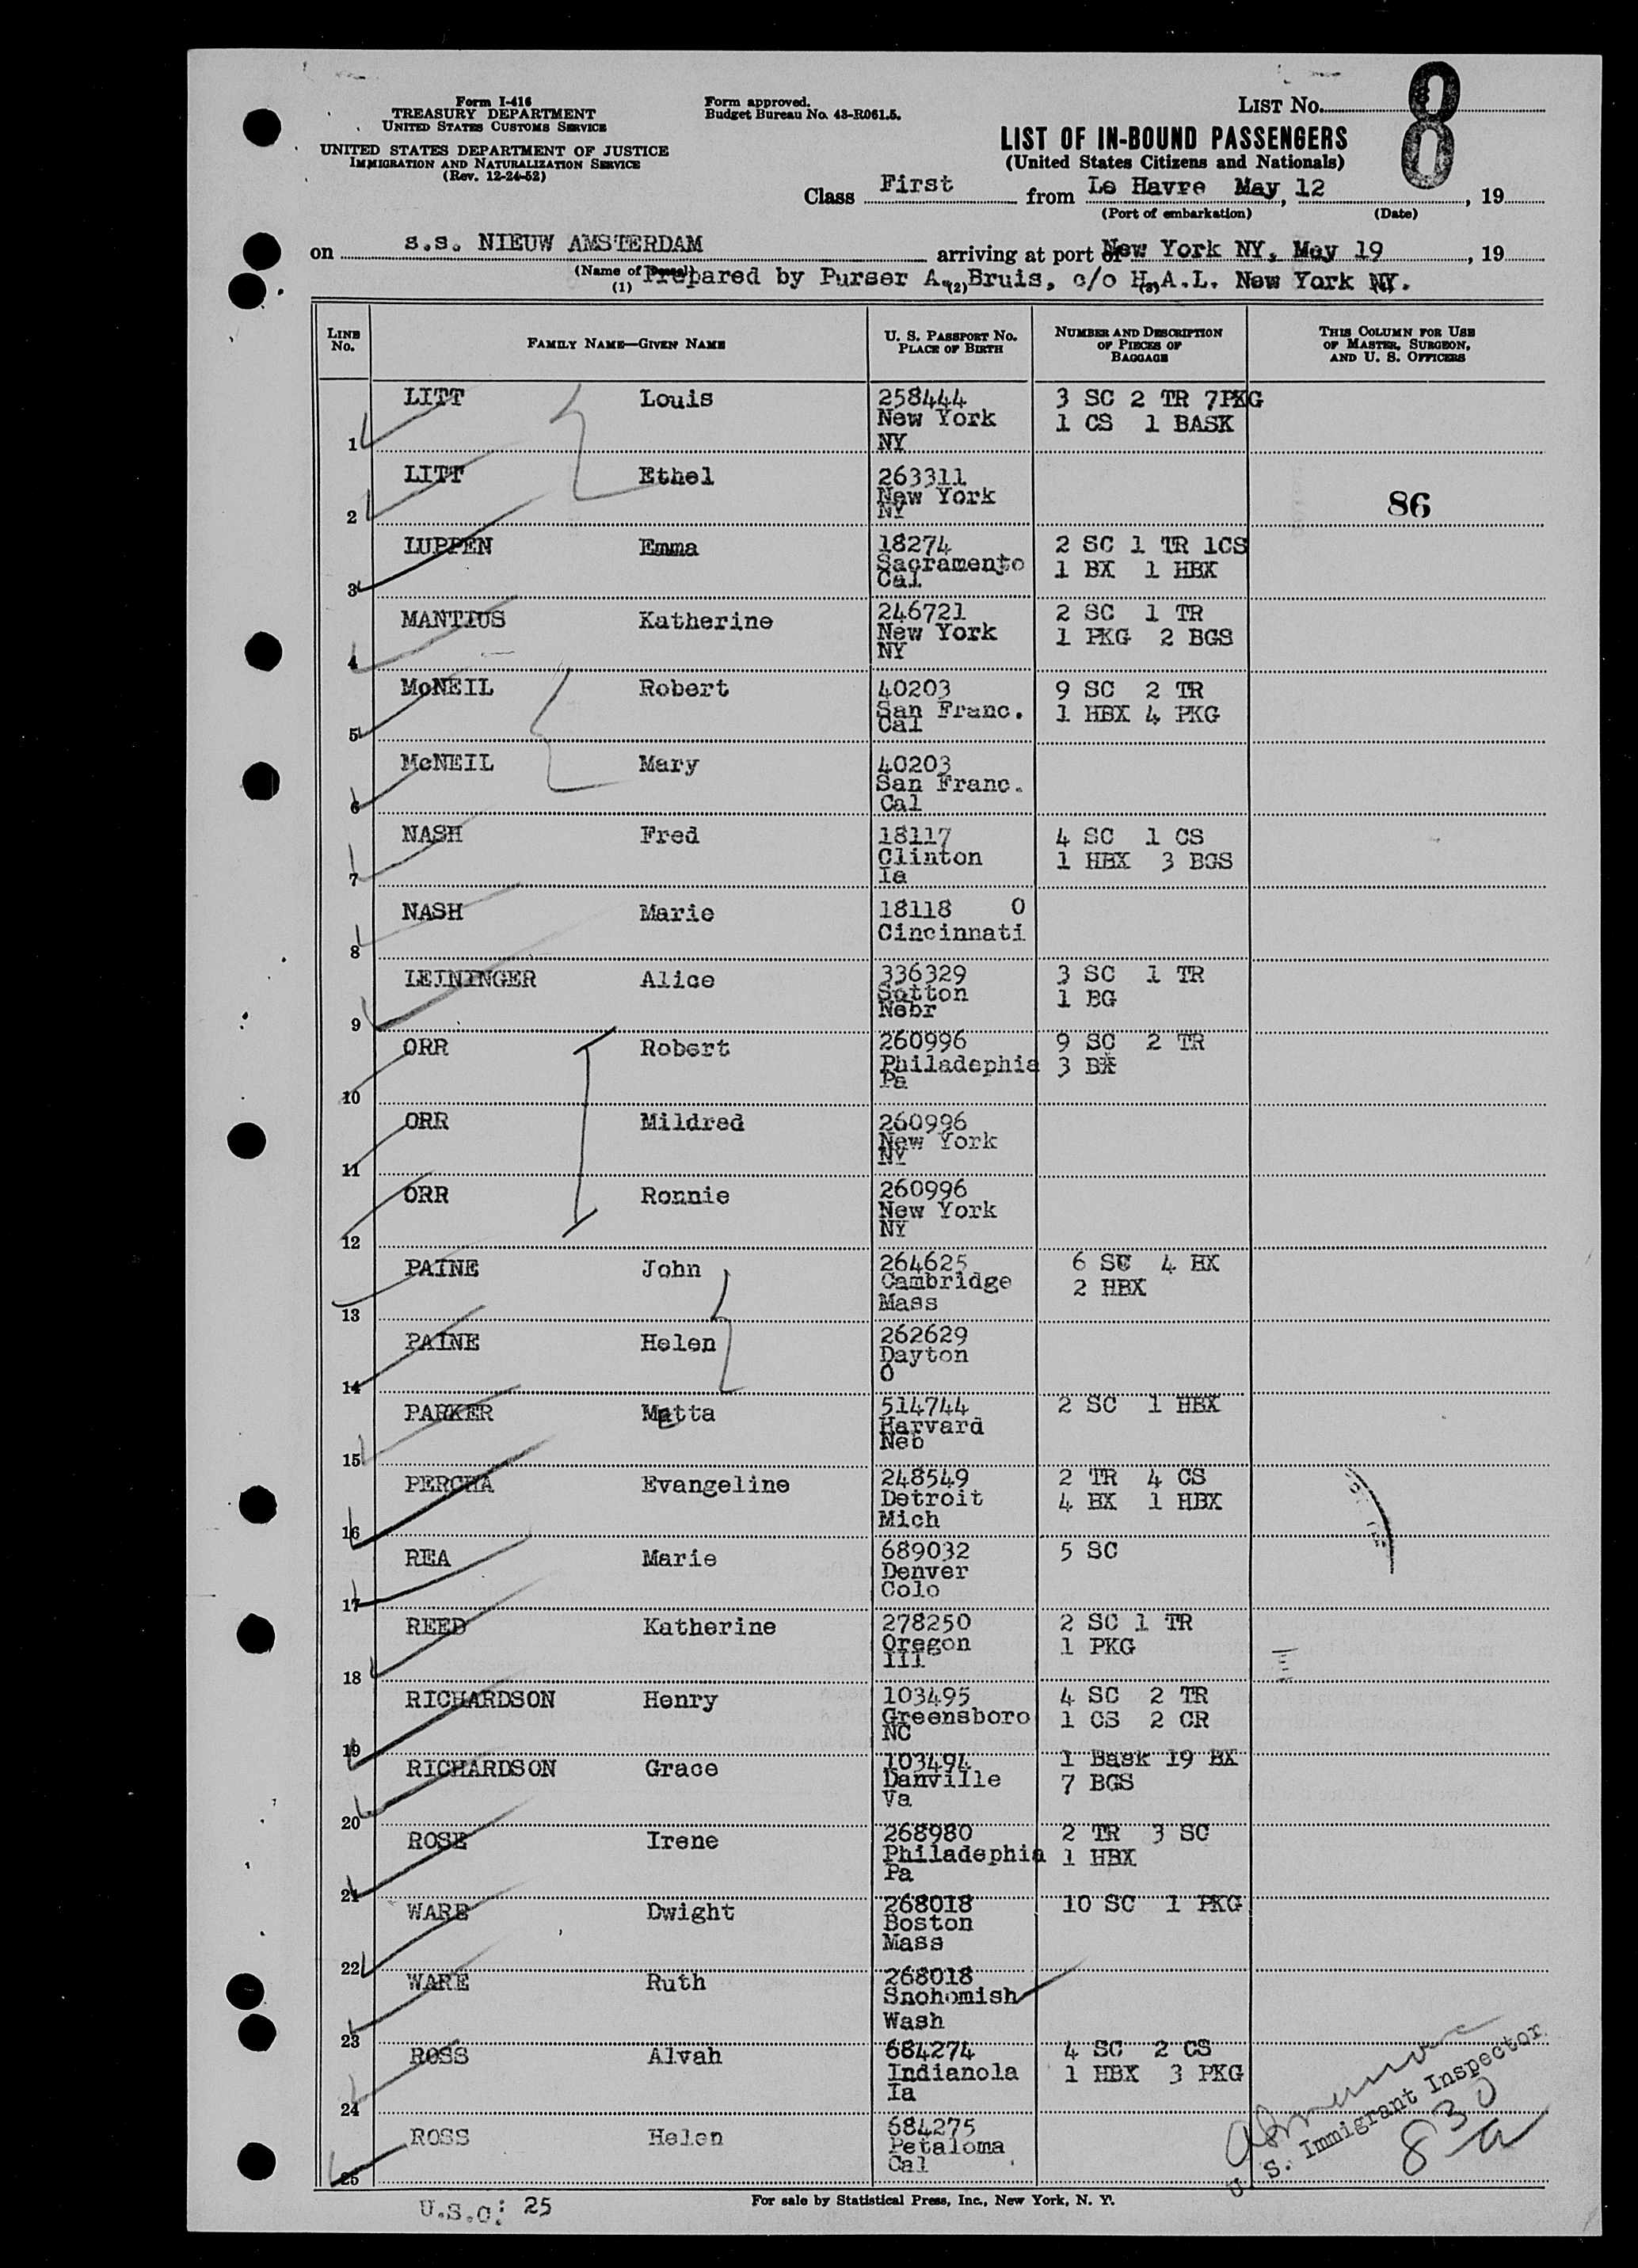 Form I-416
TREASURY DEPARTMENT
UNITED STATES CUSTOMS SERVICE
UNITED STATES DEPARTMENT OF JUSTICE
IMMIGRATION AND NATURALIZATION SERVICE
(Rev. 12-24-52)
Form approved.
Budget Bureau No. 43-R061.5.
LIST NO. 8
LIST OF IN-BOUND PASSENGERS
(United States Citizens and Nationals)
Class First from Le Havre May, 12, 19
(Port of embarkation) (Date)
on s.s. NIEUW AMSTERDAM arriving at port of New York NY, May 19, 19
(Name of Vessel)
Prepared by Purser A. Bruis, c/o H.A.L. New York NY.
(1) (2) (3) (4)
LINE No.
FAMILY NAME—GIVEN NAME
U. S. PASSPORT NO.
PLACE OF BIRTH
NUMBER AND DESCRIPTION
OF PIECES OF
BAGGAGE
THIS COLUMN FOR USE
OF MASTER, SURGEON,
AND U. S. OFFICERS
LITT Louis 258444 3 SC 2 TR 7PKG
New York 1 CS 1 BASK
1 NY
LITT Ethel 263311
New York
2 NY
86
LUPPEN Emma 18274 2 SC 1 TR 1CS
Sacramento 1 BX 1 HBX
3 Cal
MANTIUS Katherine 246721 2 SC 1 TR
New York 1 PKG 2 BGS
4 NY
McNEIL Robert 40203 9 SC 2 TR
San Franc. 1 HBX 4 PKG
5 Cal
McNEIL Mary 40203
San Franc.
6 Cal
NASH Fred 18117 4 SC 1 CS
Clinton 1 HBX 3 BGS
7 Ia
NASH Marie 18118 O
8 Cincinnati
LEININGER Alice 336329 3 SC 1 TR
Sutton 1 BG
9 Nebr
ORR Robert 260996 9 SC 2 TR
Philadephia 3 BX
10 Pa
ORR Mildred 260996
New York
11 NY
ORR Ronnie 260996
New York
12 NY
PAINE John 264625 6 SC 4 BX
Cambridge 2 HBX
13 Mass
PAINE Helen 262629
Dayton
14 O
PARKER Metta 514744 2 SC 1 HBX
Harvard
15 Neb
PERCHA Evangeline 248549 2 TR 4 CS
Detroit 4 BX 1 HBX
16 Mich
REA Marie 689032 5 SC
Denver
17 Colo
REED Katherine 278250 2 SC 1 TR
Oregon 1 PKG
18 Ill
RICHARDSON Henry 103495 4 SC 2 TR
Greensboro 1 CS 2 CR
19 NC
RICHARDSON Grace 103494 1 Bask 19 BX
Danville 7 BGS
20 Va
ROSE Irene 268980 2 TR 3 SC
Philadephia 1 HBX
21 Pa
WARE Dwight 268018 10 SC 1 PKG
Boston
22 Mass
WARE Ruth 268018
Snohomish
23 Wash
ROSS Alvah 684274 4 SC 2 CS
Indianola 1 HBX 3 PKG
24 Ia
ROSS Helen 684275
Petaloma
25 Cal
U. S. Immigrant Inspector
830
a
U.S.C: 25
For sale by Statistical Press, Inc., New York, N. Y.